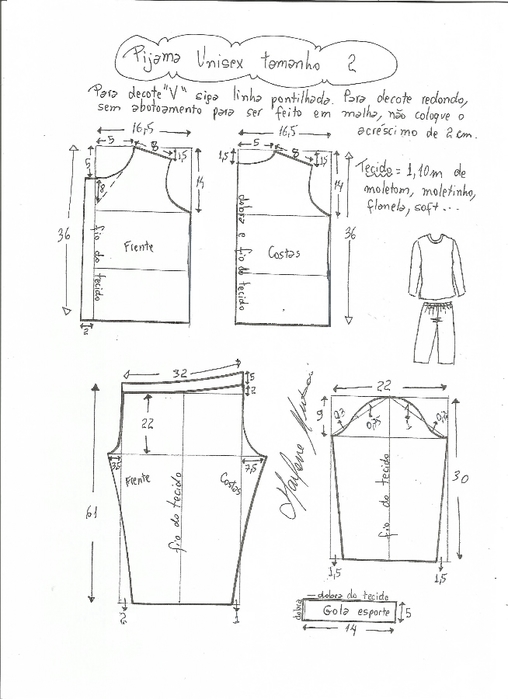 Pijama Unisex tamanho 2
Para decote "V" siga linha pontilhada. Para decote redondo,
sem abotoamento para ser feito em malha, não coloque o
acréscimo de 2 cm.
16,5
5
8
1,5
5
8
14
36
Frente
fio do tecido
2
16,5
5
8
1,5
1,5
14
36
dobra e fio do tecido
Costas
Tecido = 1,10m de
moletom, moletinho,
flanela, soft...
32
5
2
22
3,5
7,5
61
Frente
Costas
fio do tecido
3
3
22
9
0,3
0,75
1
0,3
30
fio do tecido
1,5
1,5
dobra do tecido
dobra
Gola esporte
5
14